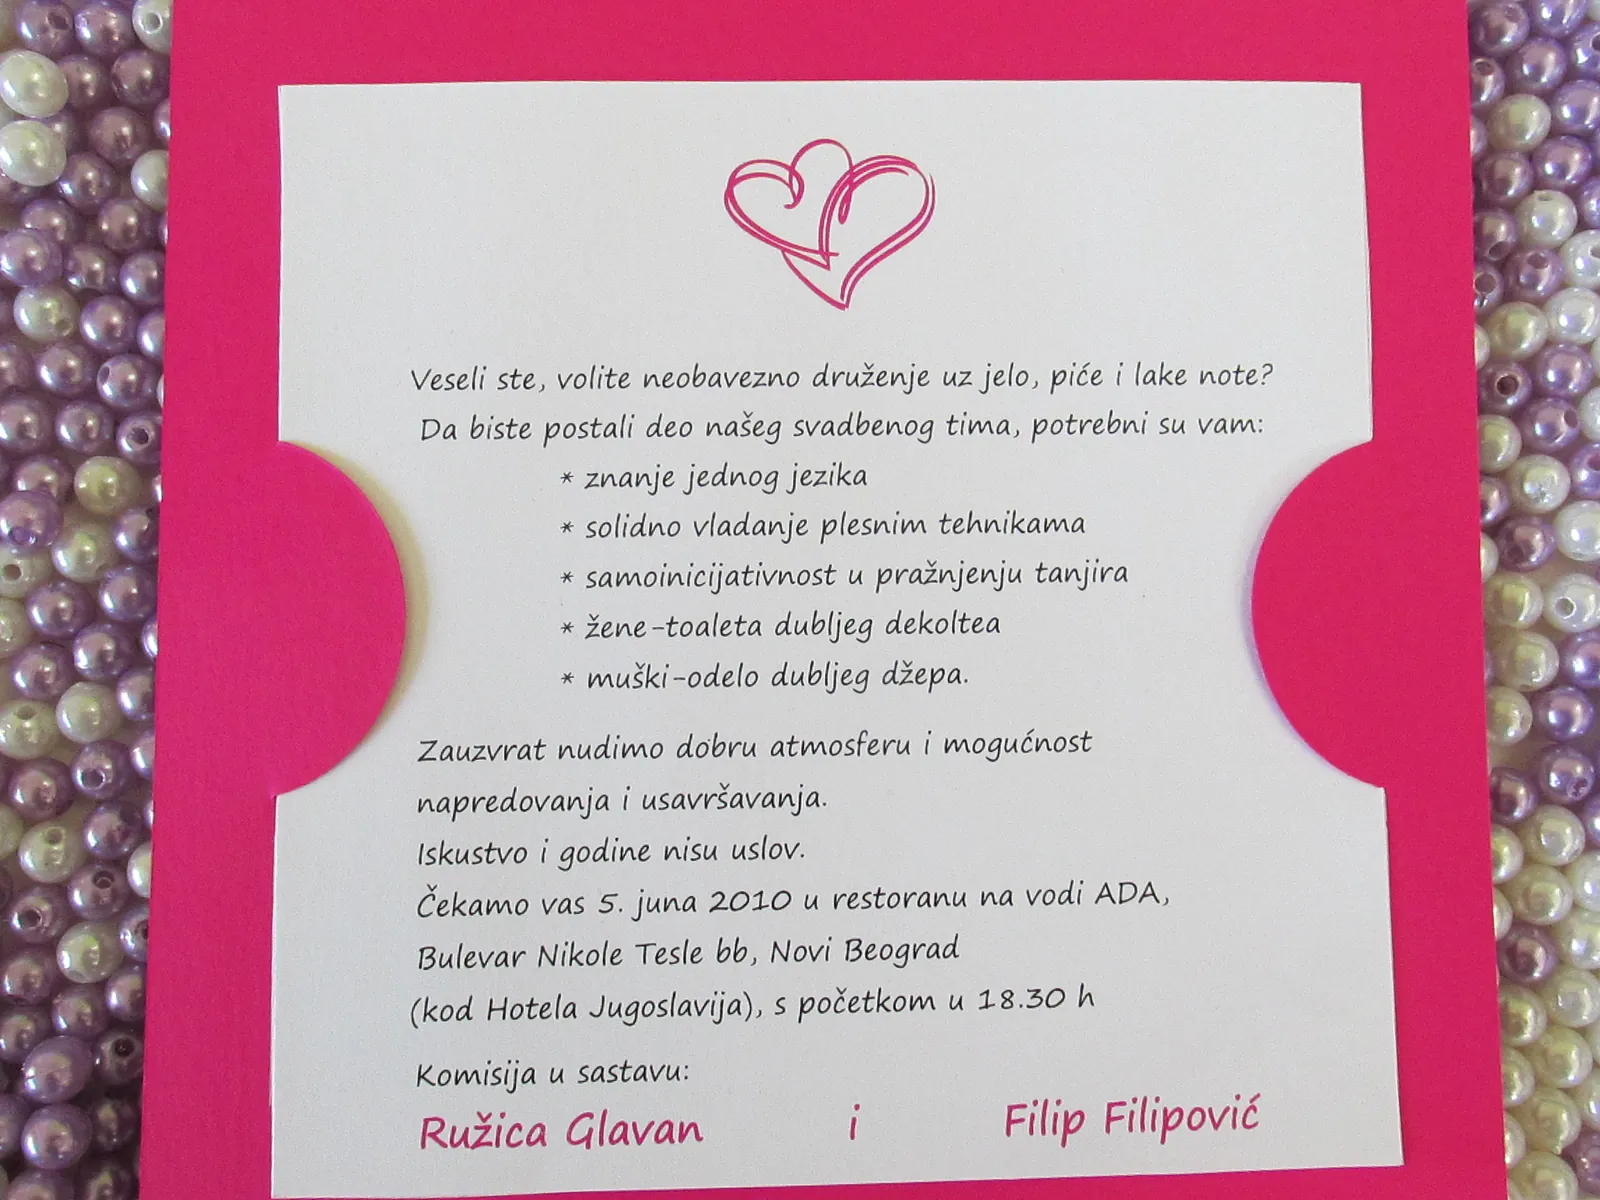 Veseli ste, volite neobavezno druženje uz jelo, piće i lake note?
Da biste postali deo našeg svadbenog tima, potrebni su vam:
* znanje jednog jezika
* solidno vladanje plesnim tehnikama
* samoinicijativnost u pražnjenju tanjira
* žene-toaleta dubljeg dekoltea
* muški-odelo dubljeg džepa.
Zauzvrat nudimo dobru atmosferu i mogućnost
napredovanja i usavršavanja.
Iskustvo i godine nisu uslov.
Čekamo vas 5. juna 2010 u restoranu na vodi ADA,
Bulevar Nikole Tesle bb, Novi Beograd
(kod Hotela Jugoslavija), s početkom u 18.30 h
Komisija u sastavu:
Ružica Glavan i Filip Filipović